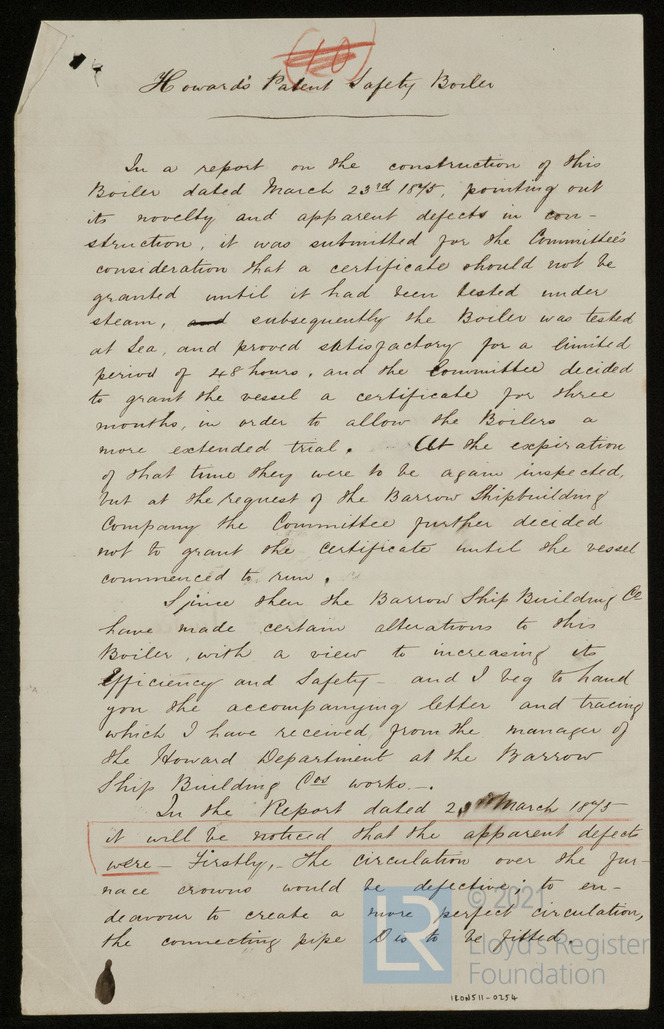 (10)
Howard's Patent Safety Boiler
In a report on the construction of this
Boiler dated March 23rd 1875, pointing out
its novelty and apparent defects in con-
struction, it was submitted for the Committee's
consideration that a certificate should not be
granted until it had been tested under
steam, and subsequently the Boiler was tested
at Sea, and proved satisfactory for a limited
period of 48 hours, and the Committee decided
to grant the vessel a certificate for three
months, in order to allow the Boilers a
more extended trial. At the expiration
of that time they were to be again inspected,
but at the request of the Barrow Shipbuilding
Company the Committee further decided
not to grant the certificate until the vessel
commenced to run.
Since then the Barrow Ship Building Co
have made certain alterations to this
Boiler, with a view to increasing its
Efficiency and Safety - and I beg to hand
you the accompanying letter and tracing
which I have received from the manager of
the Howard Department at the Barrow
Ship Building Cos works.-.
In the Report dated March 1875
it will be noticed that the apparent defects
were - Firstly, - The circulation over the fur-
nace crowns would be defective; to en-
deavour to create a more perfect circulation,
the connecting pipe D is to be fitted.
© 2021
LR
Lloyd's Register
Foundation
IRON511-0254